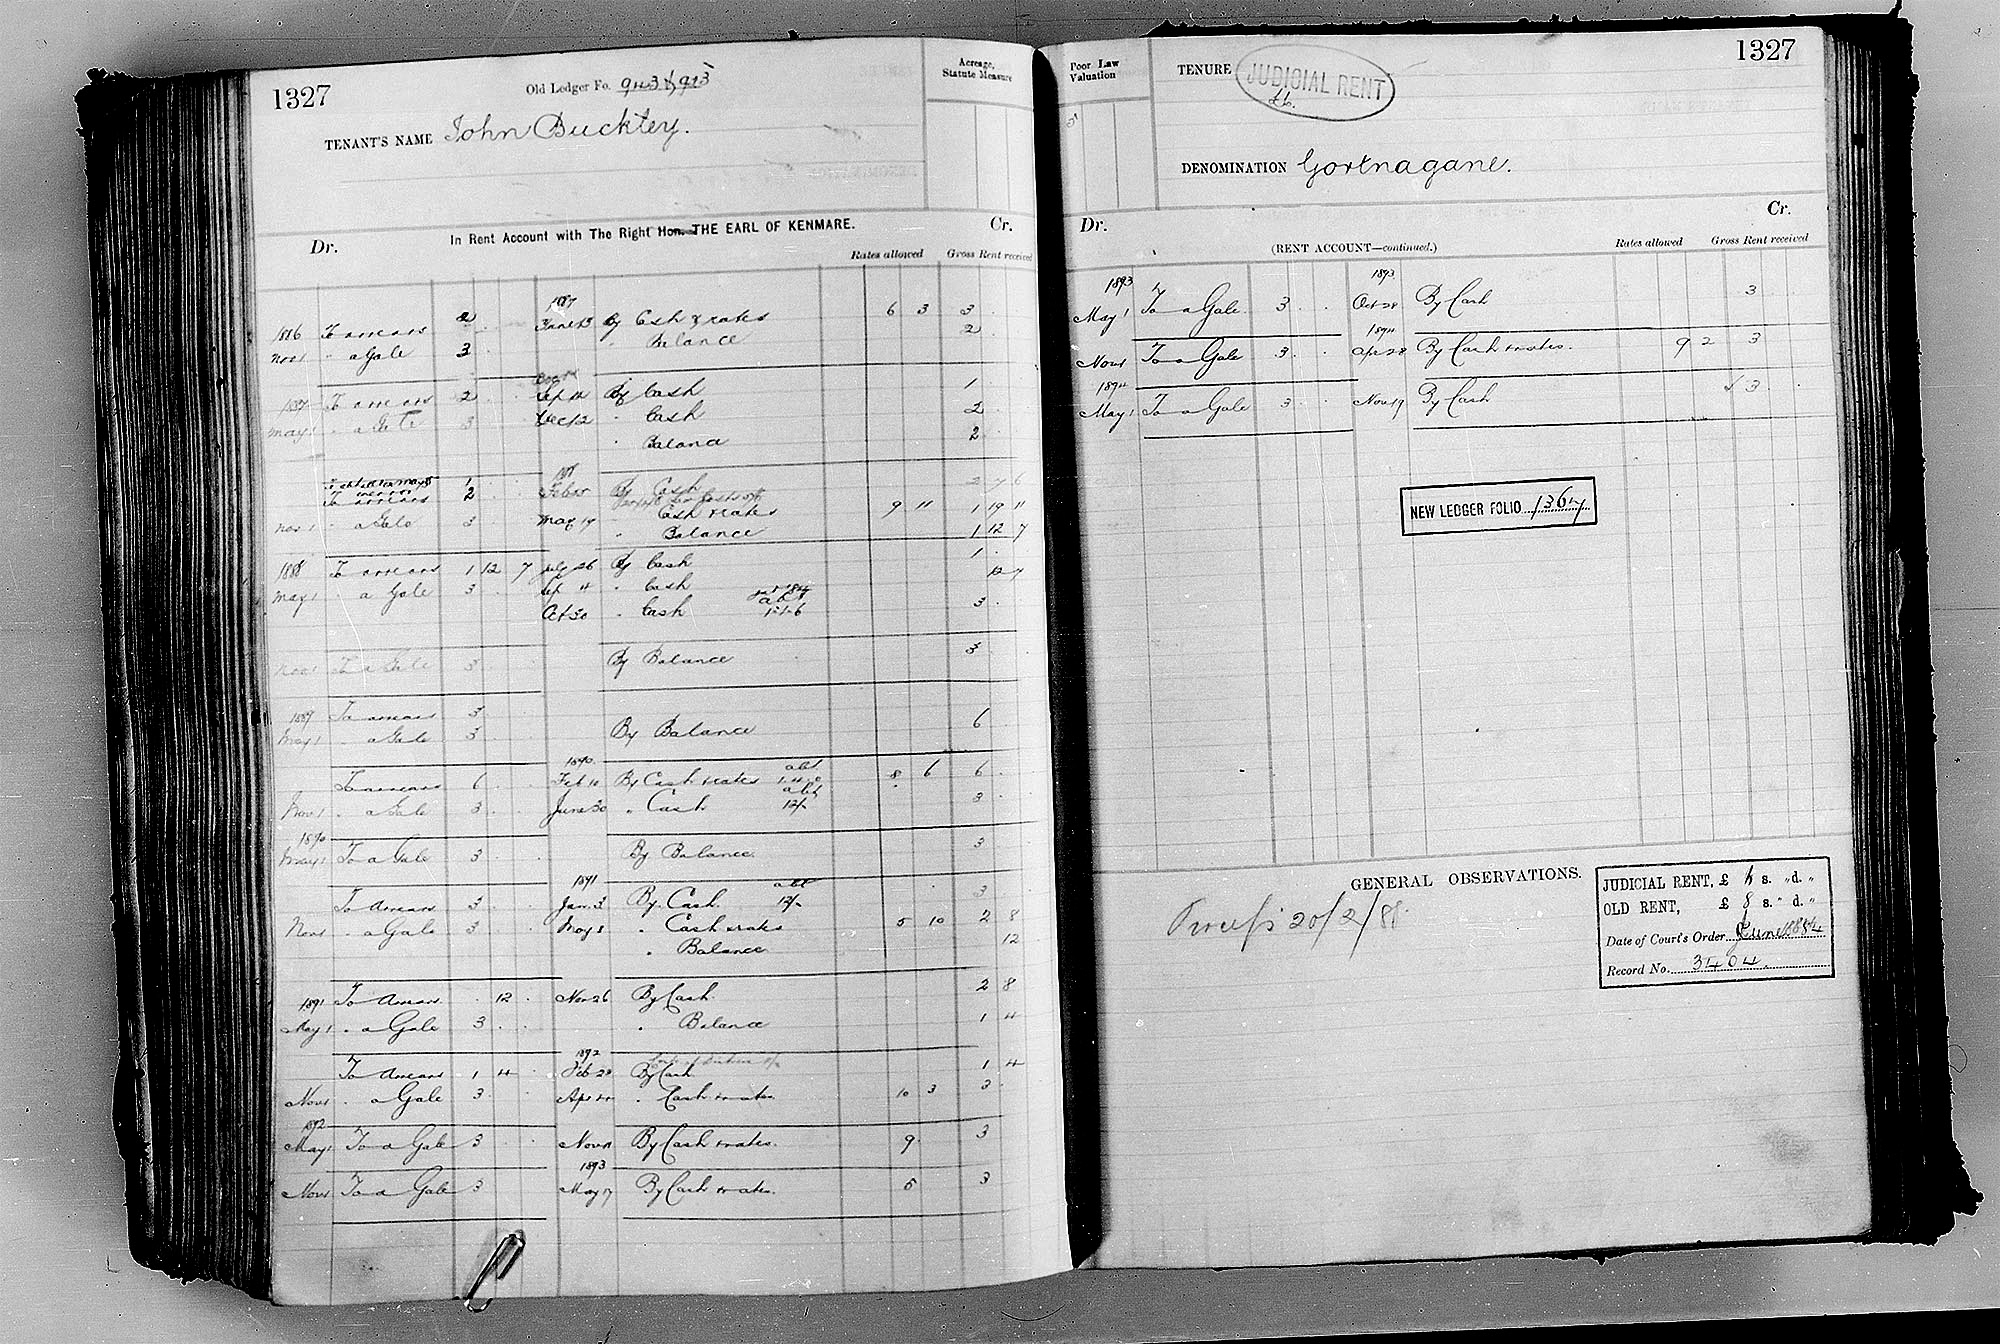 1327
Old Ledger Fo. 943 & 913
TENANT'S NAME John Buckley.
Acreage, Statute Measure
In Rent Account with The Right Hon. THE EARL OF KENMARE.
Dr. Cr.
Rates allowed Gross Rent received
1887
1886 To arrears 2 . . June 13 By Cash & rates 6 3 3 .
Nov 1 " a Gale 3 . . " Balance 2
1887 To arrears 2 . . Sep 12 By Cash 1
May 1 " a Gale 3 . . Dec 12 " Cash 2 .
" Balance 2 .
1
To arrears 2 Feb By Cash 2 7 6
Nov 1 " a Gale 3 May 17 Cash & rates 9 11 1 19 11
" Balance 1 12 7
1888 To arrears 1 12 7 July 26 By Cash 1 .
May 1 " a Gale 3 . . Sep 4 " Cash 12 7
Oct 30 " Cash abt 1-1-6 3 .
Nov 1 To a Gale 3 By Balance 3
1889 To arrears 3 . .
May 1 " a Gale 3 . . By Balance 6
1890
To arrears 6 . . Feb 10 By Cash & rates abt 8 6 6 .
Nov 1 " a Gale 3 . . June 30 " Cash abt 12/- 3 .
1890
May 1 To a Gale 3 . . By Balance. 3
1891
To Arrears 3 . . Jan. 3 By Cash. abt 12/- 3
Nov 1 " a Gale 3 . . May 8 " Cash & rates 5 10 2 8
" Balance 12
1891 To Arrears . 12 . Nov 26 By Cash. 2 8
May 1 " a Gale 3 . . " Balance 1 4
1892
To Arrears 1 4 Feb 29 By Cash 1 4
Nov 1 " a Gale 3 . . Apr " Cash & rates 10 3 3 .
1892
May 1 To a Gale 3 . . Nov 11 By Cash & rates. 9 3
1893
Nov 1 To a Gale 3 May 17 By Cash & rates. 5 3
1327
Poor Law Valuation
TENURE JUDICIAL RENT
£6.
DENOMINATION Gortnagane.
Dr. Cr.
(RENT ACCOUNT—continued.)
Rates allowed Gross Rent received
1893 1893
May 1 To a Gale. 3 . . Oct 28 By Cash 3
1894
Nov 1 To a Gale 3 . . Apr 28 By Cash & rates. 9 2 3
1894
May 1 To a Gale 3 . . Nov 17 By Cash √ 3 .
NEW LEDGER FOLIO 1367
GENERAL OBSERVATIONS.
Process 20/2/88.
JUDICIAL RENT, £ 6 s. " d. "
OLD RENT, £ 8 s. " d. "
Date of Court's Order June 1884
Record No. 3404.